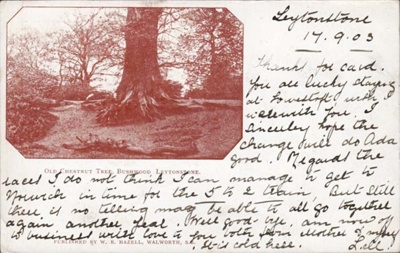 Leytonstone
17.9.03
Thanks for card.
You are lucky staying
at Lowestoft, wish I
was with you. I
sincerely hope the
change will do Ada
good. Regards the
OLD CHESTNUT TREE, BUSHWOOD LEYTONSTONE.
races I do not think I can manage to get to
Norwich in time for the 5 to 2 train, But still
there is no telling may be able to all go together
again another year. Well good-bye, am now off
to business with love to you both from Mother &
PUBLISHED BY W. R. HAZELL, WALWORTH, S.E.
It is cold here.